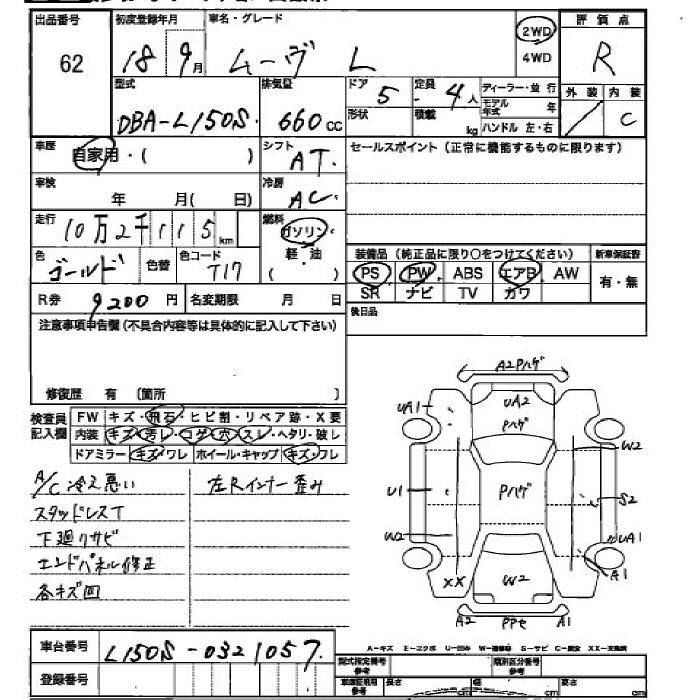 出品番号 初度登録年月 車名・グレード 評価点
62 18 9月 ムーヴ L 2WD 4WD R
型式 排気量 ドア 定員 ディーラー・並行 外装 内装
DBA-L150S. 660cc 5 4人 モデル年式 年 / C
形状 積載 kg ハンドル 左・右
車歴 自家用・( ) シフト AT. セールスポイント(正常に機能するものに限ります)
車検 年 月( 日) 冷房 AC.
走行 10万2千115km 燃料 ガソリン・軽・油 ( )
色 ゴールド 色替 色コード T17
装備品(純正品に限り〇をつけてください) 新車保証書
PS PW ABS エアB AW 有・無
SR ナビ TV カワ
R券 9200円 名変期限 月 日 後日品
注意事項申告欄(不具合内容等は具体的に記入して下さい)
修復歴 有 〔箇所 〕
検査員記入欄 FW キズ・飛石・ヒビ割・リペア跡・X要
内装 キズ・汚レ・コゲ・穴・スレ・ヘタリ・破レ
ドアミラー キズ・ワレ ホイール・キャップ キズ・フレ
A/C冷え悪い 左Rインナー歪み
スタッドレスT
下廻リサビ
エンドパネル修正
各キズ凹
A2Pハゲ
UA1 UA2
Pハゲ
W2
U1 Pハゲ S2
W2 UA1
A1
XX W2
A2 PPセ A1
車台番号 L150S-0321057.
A-キズ E-エクボ U-凹み W-補修跡 S-サビ C-腐食 XX-交換済
登録番号 型式指定番号 参考 類別区分番号 参考
車庫証明用 参考 長さ cm 幅 cm 高さ cm